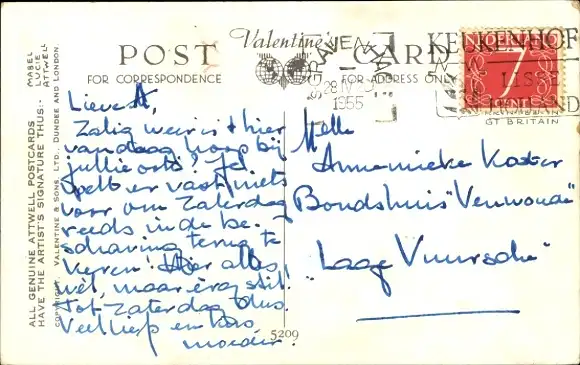 ALL GENUINE ATTWELL POSTCARDS
HAVE THE ARTIST'S SIGNATURE THUS:-
MABEL
LUCIE
ATTWELL
COPYRIGHT, VALENTINE & SONS LTD., DUNDEE AND LONDON.
POST CARD
Valentine's
FOR CORRESPONDENCE
FOR ADDRESS ONLY
'S GRAVENHAGE
28 IV
1955
KEUKENHOF
LISSE
HOLLAND
NEDERLAND
7
CENT
GT BRITAIN
Lieve A,
Zalig weer is 't hier
vandaag hoop bij
jullie ook! Jel
spelt er vast niets
voor om Zaterdag
reeds in de be-
schaving terug te
keren! Hier alles
wel, maar erg stil!
Tot Zaterdag dus.
Veel liefs en kus
moeder.
Mlle
Annemieke Koster
Bondshuis "Venwoude"
"Lage Vuursche"
5209